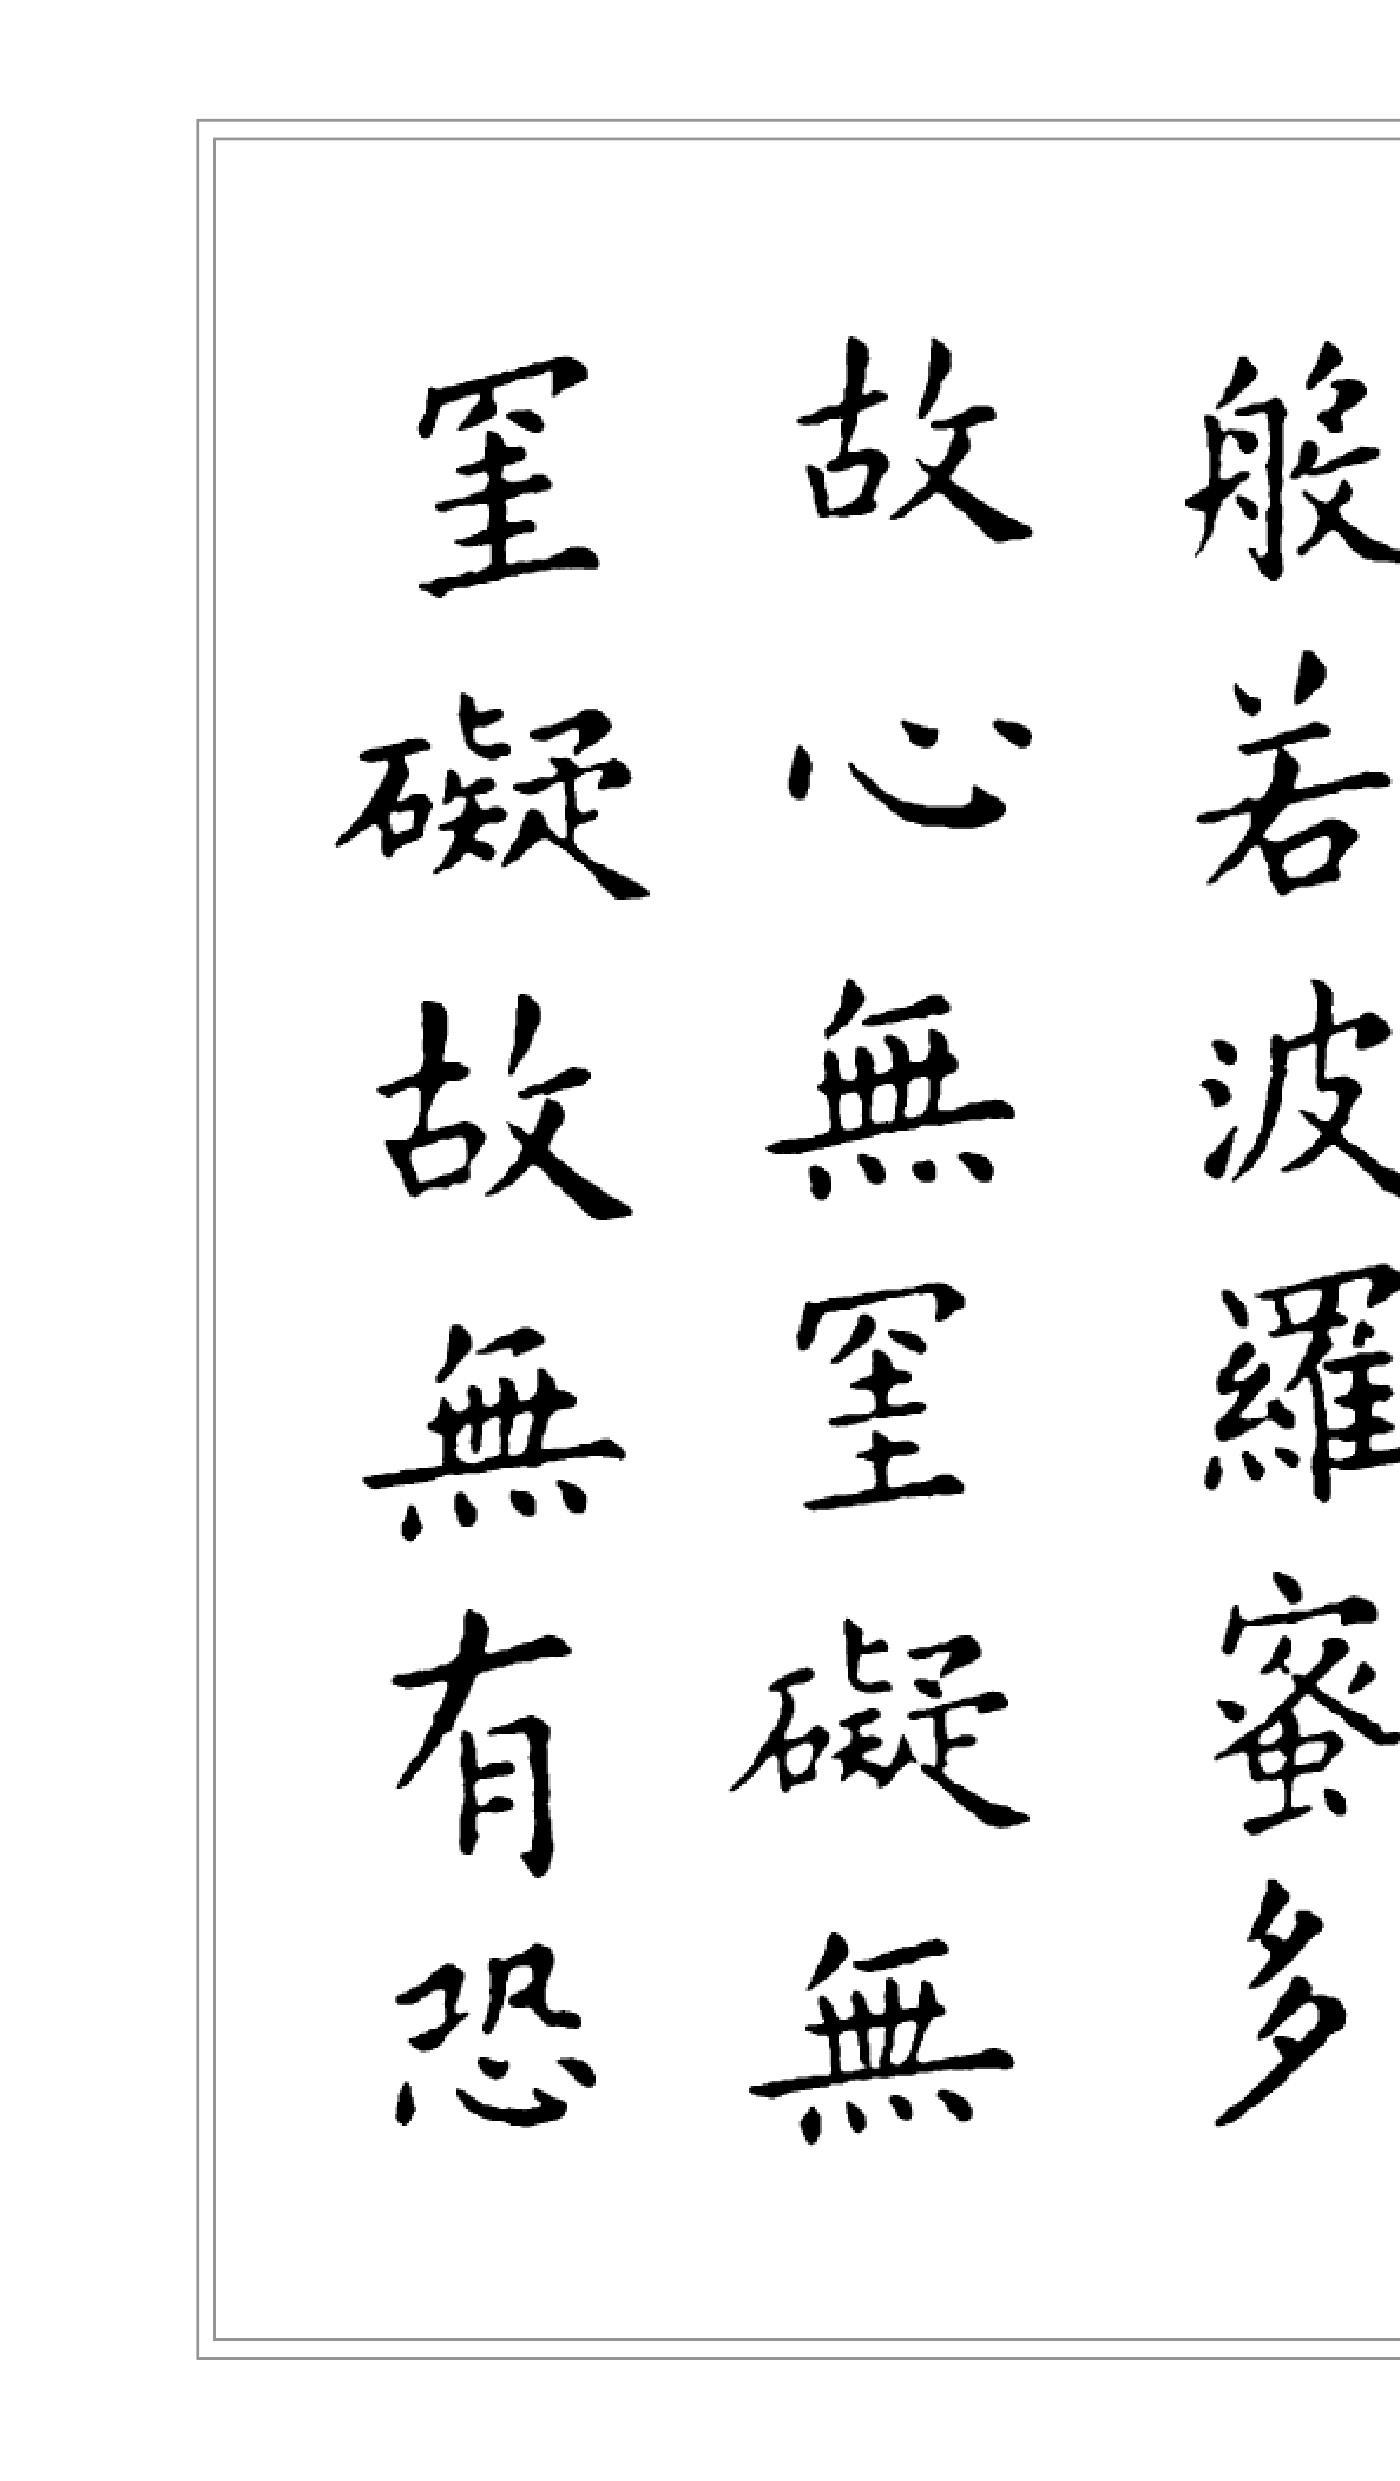 般若波羅蜜多
故心無罣礙無
罣礙故無有恐